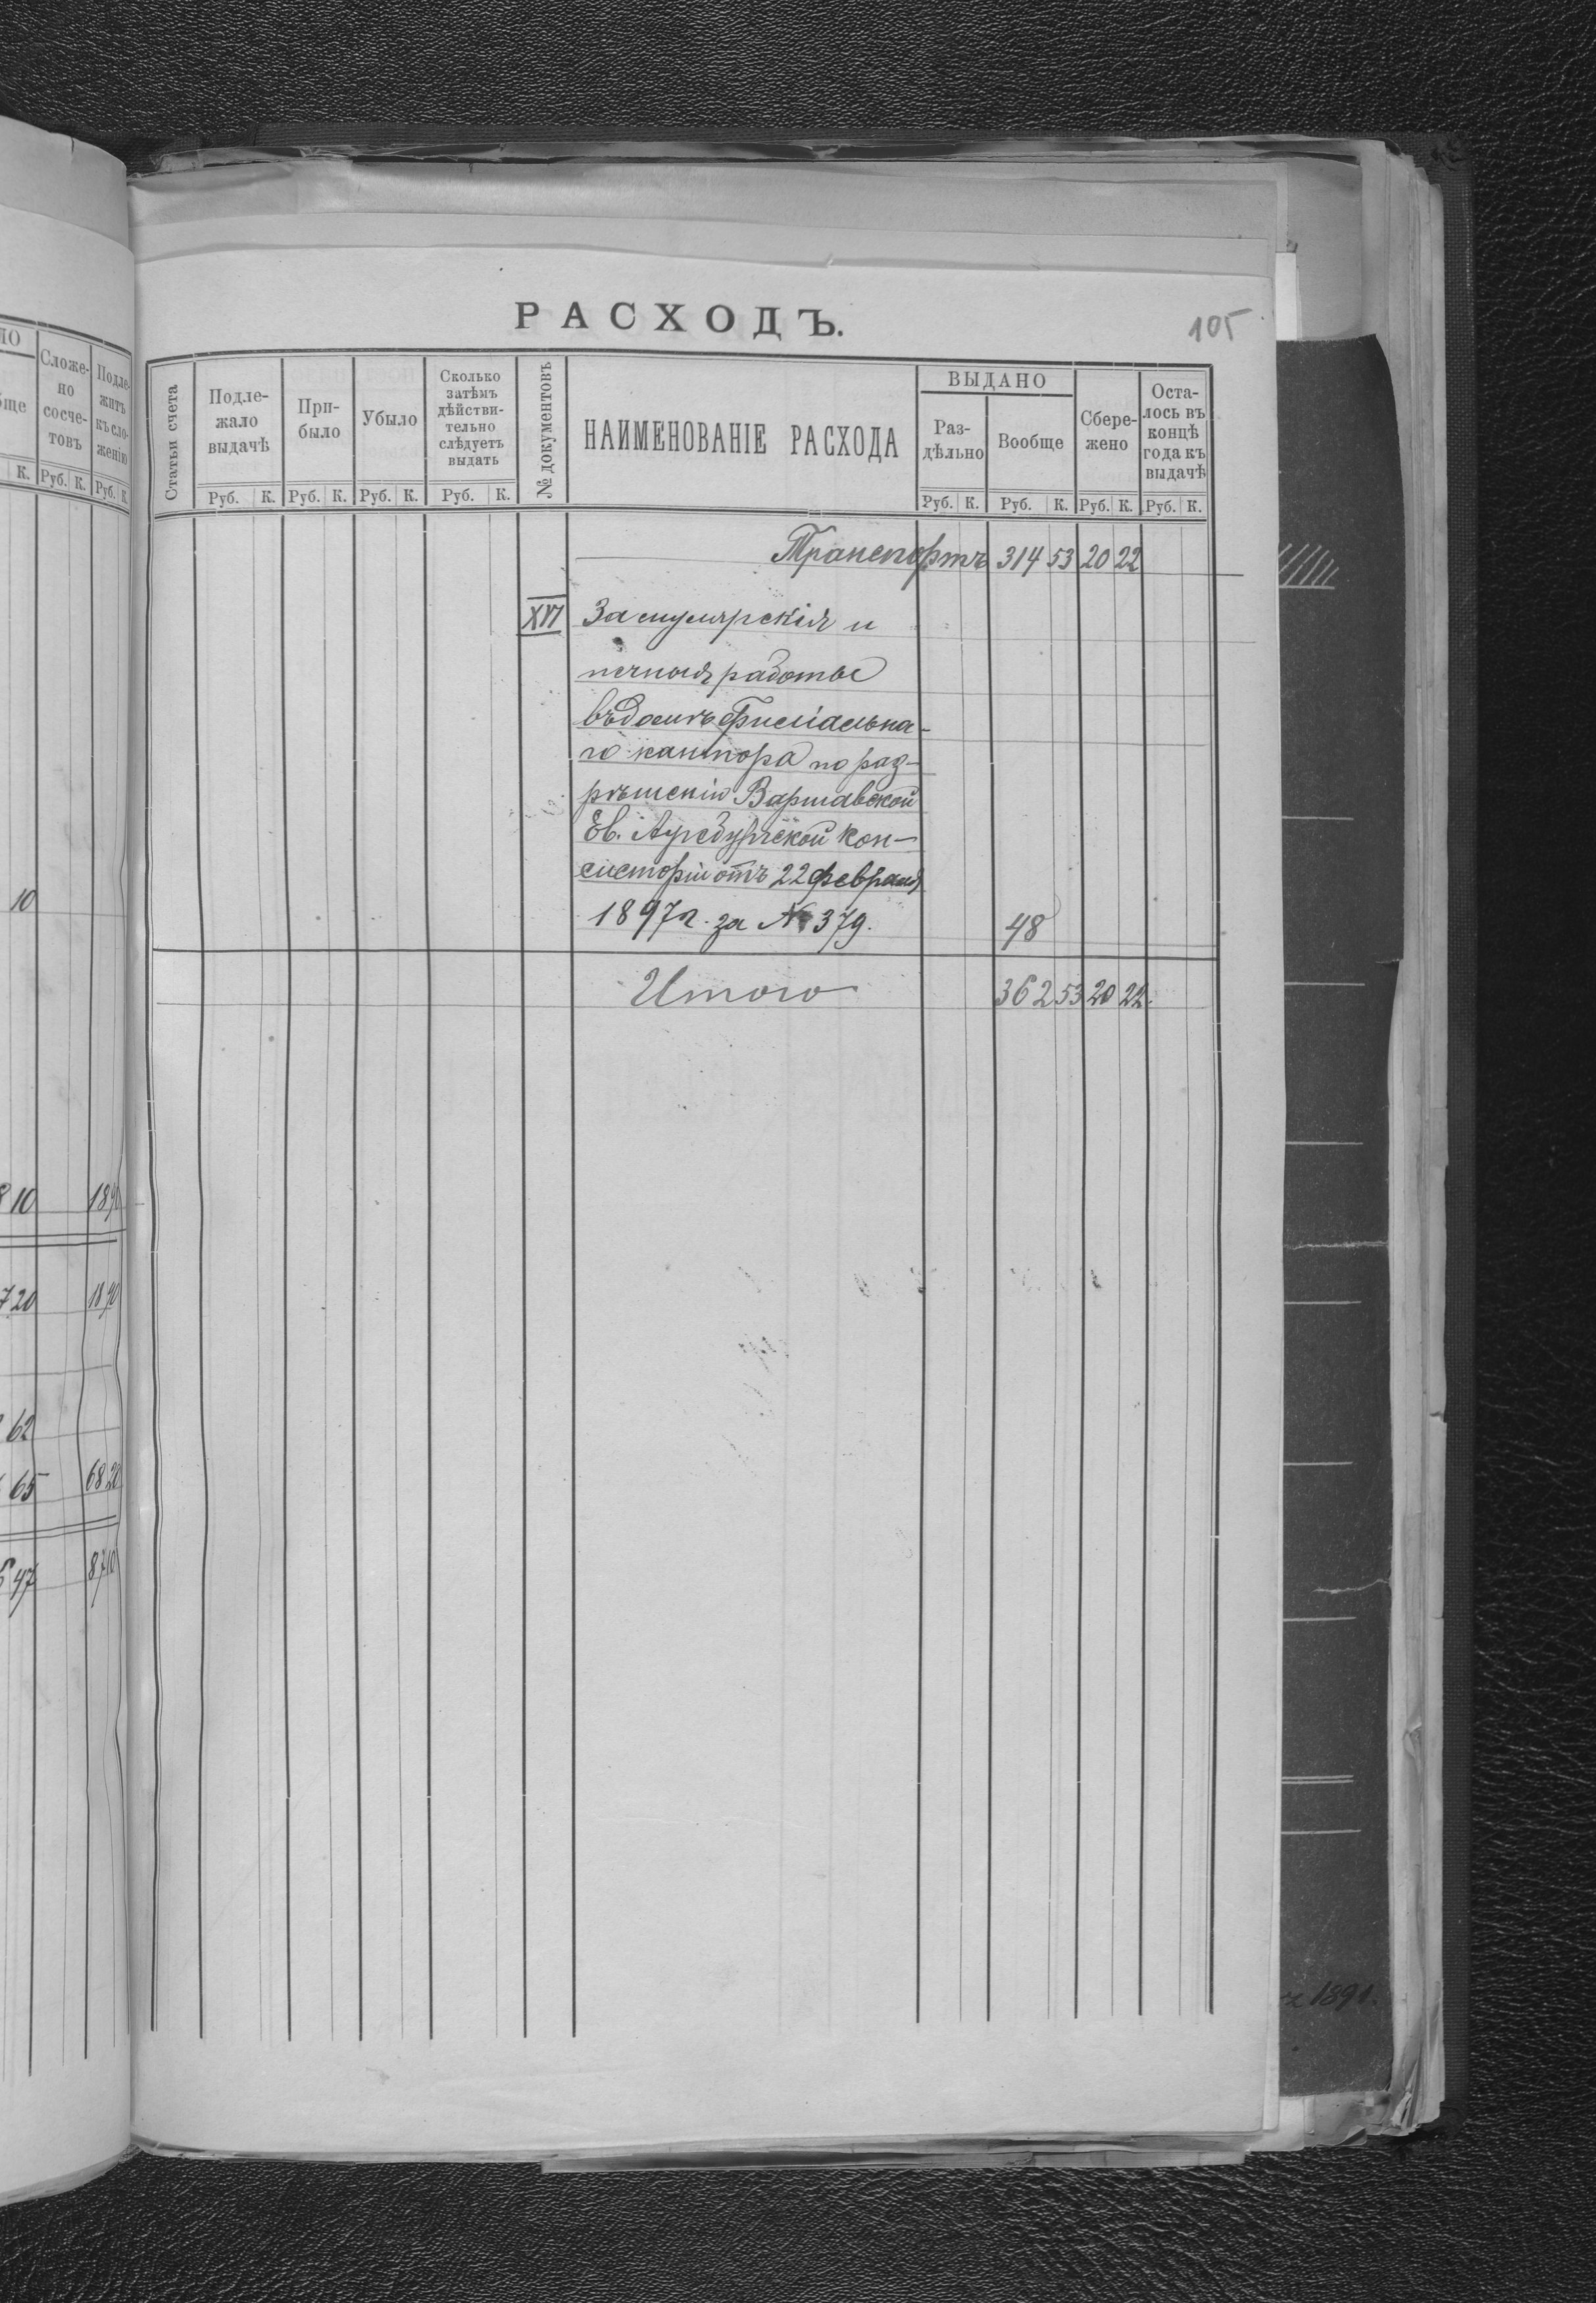 РАСХОДЪ.
105
Статьи счета
Подле-
жало
выдачѣ
При-
было
Убыло
Сколько
затѣмъ
дѣйстви-
тельно
слѣдуетъ
выдать
№ документовъ
НАИМЕНОВАНІЕ РАСХОДА
ВЫДАНО
Раз-
дѣльно
Вообще
Сбере-
жено
Оста-
лось въ
концѣ
года къ
выдачѣ
Руб. К. Руб. К. Руб. К. Руб. К. Руб. К. Руб. К. Руб. К. Руб. К.
Транспортъ 314 53 20 22
XVI За столярскія и
печныя работы
въ домѣ Филіальна-
го кантора по раз-
рѣшенію Варшавской
Ев. Аугсбургской Кон-
систоріи отъ 22 февраля
1897 г. за № 379. 48
Итого 362 53 20 22.
Сложе-
но
сосче-
товъ
Подле-
житъ
къ сло-
женію
К. Руб. К. Руб. К.
10
10 18 90
20 18 90
62
65 68 20
47 87 10
1891.